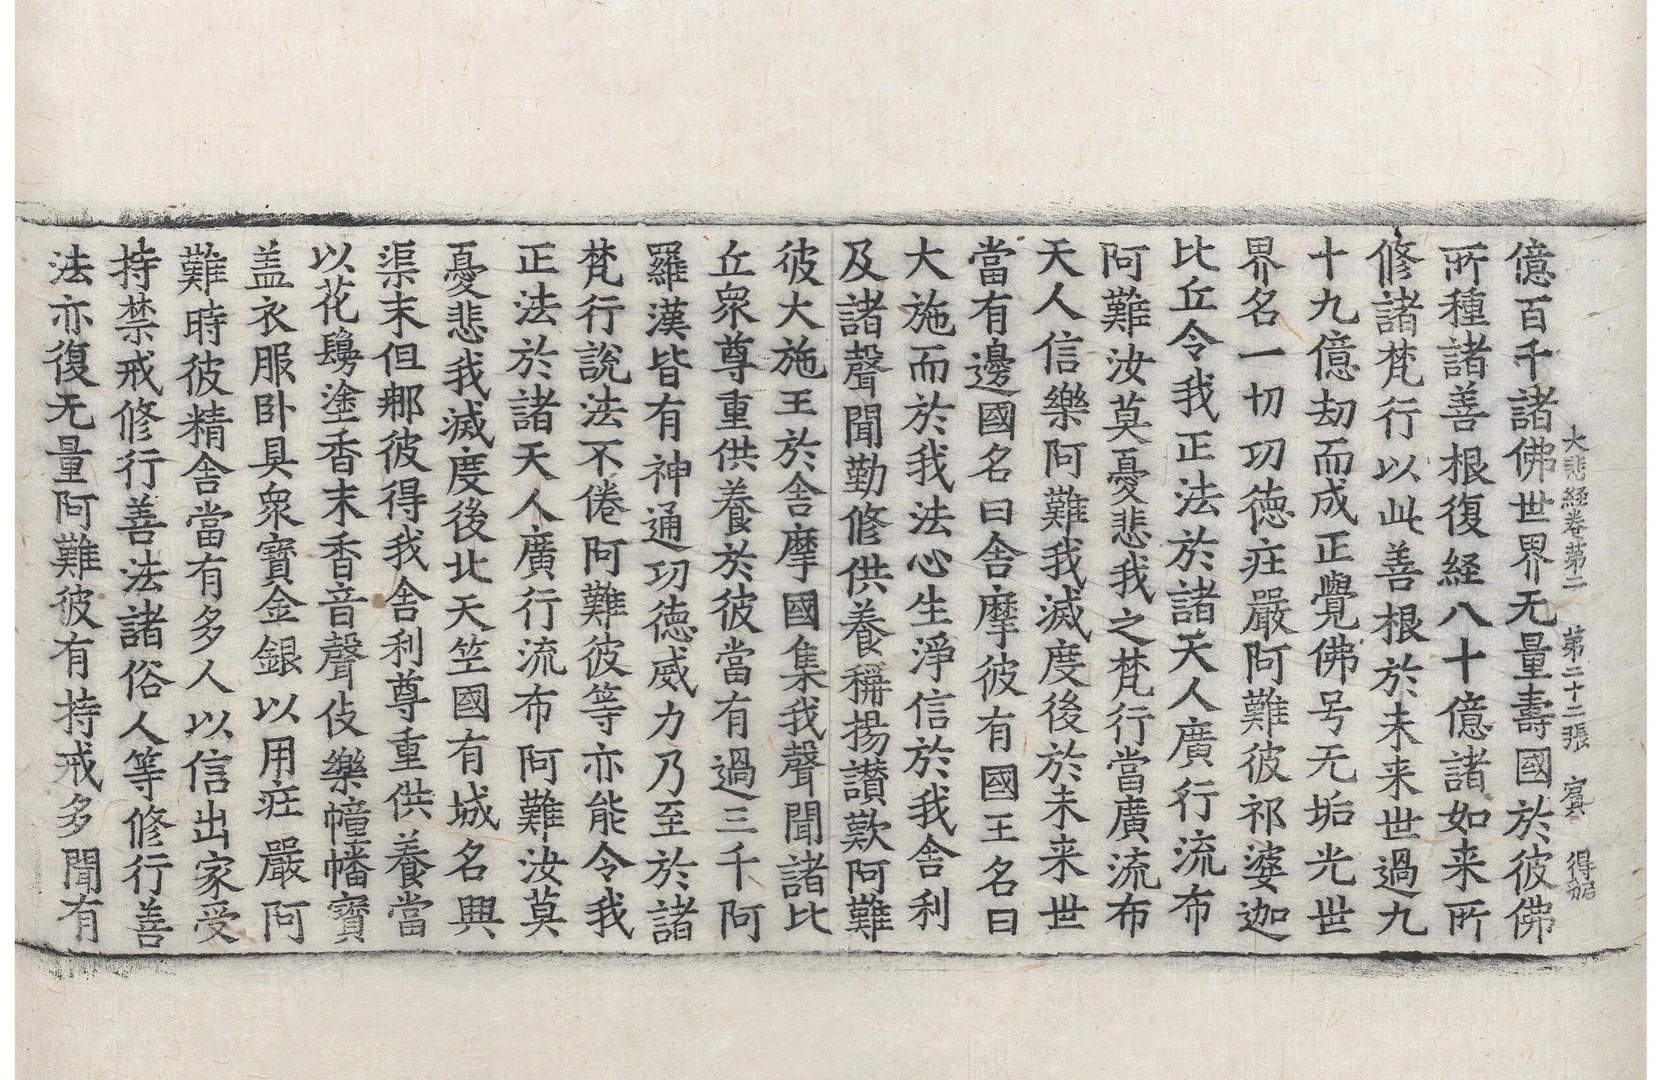 大悲経卷第二 第二十二張 寳 得
億百千諸佛世界无量壽國於彼佛
所種諸善根復経八十億諸如来所
修諸梵行以此善根於未来世過九
十九億劫而成正覺佛号无垢光世
界名一切功徳庄嚴阿難彼祁婆迦
比丘令我正法於諸天人廣行流布
阿難汝莫憂悲我之梵行當廣流布
天人信樂阿難我滅度後於未来世
當有邊國名曰舍摩彼有國王名曰
大施而於我法心生淨信於我舍利
及諸聲聞勤修供養稱揚讃歎阿難
彼大施王於舍摩國集我聲聞諸比
丘衆尊重供養於彼當有過三千阿
羅漢皆有神通功德威力乃至於諸
梵行說法不倦阿難彼等亦能令我
正法於諸天人廣行流布阿難汝莫
憂悲我滅度後北天竺國有城名興
渠末但那彼得我舍利尊重供養當
以花鬘塗香末香音聲伎樂幢幡寳
盖衣服卧具衆寳金銀以用庄嚴阿
難時彼精舍當有多人以信出家受
持禁戒修行善法諸俗人等修行善
法亦復无量阿難彼有持戒多聞有